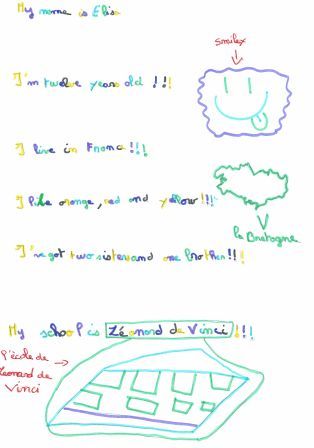 My name is Elisa
Smiley
I'm twelve years old !!!
I live in France!!!
I like orange, red and yellow!!!!
la Bretagne
I've got two sisters and one brother!!!
My school is Léonard de Vinci !!!
l'école de
Léonard de
Vinci